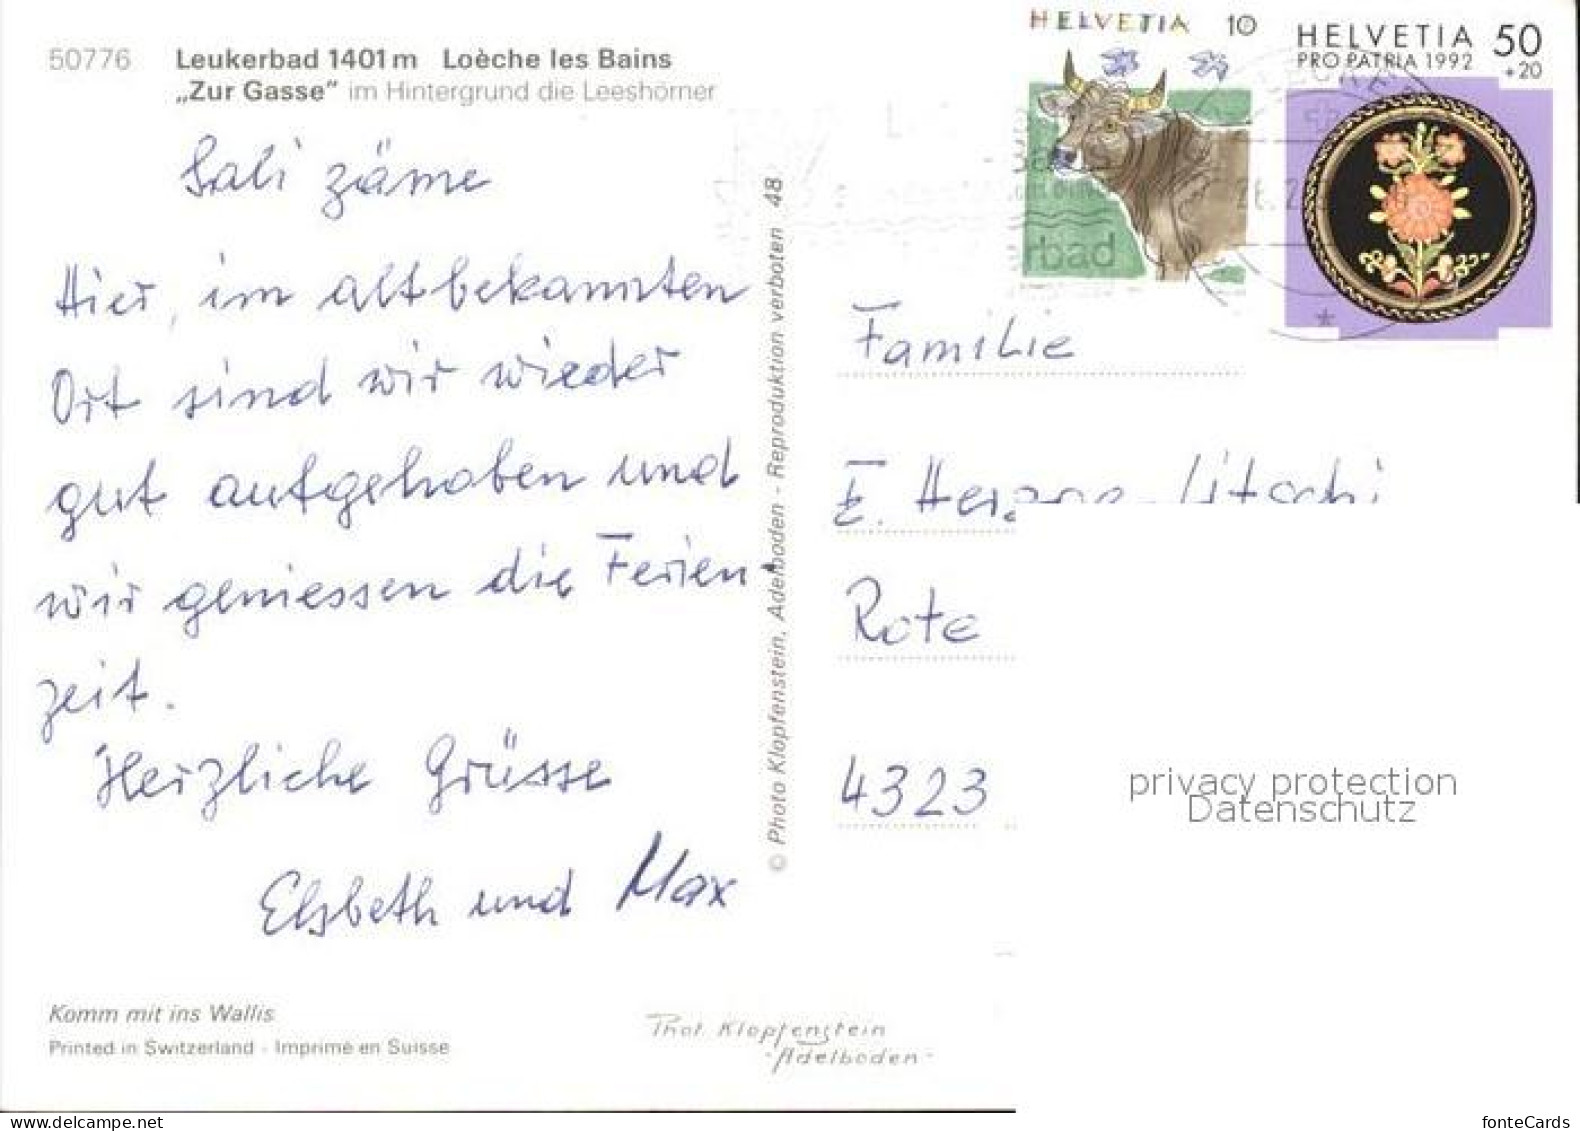 50776 Leukerbad 1401 m Loèche les Bains
„Zur Gasse“ im Hintergrund die Leeshörner
Sali zäme
Hier, im altbekannten
Ort sind wir wieder
gut aufgehoben und
wir geniessen die Ferien-
zeit.
Herzliche Grüsse
Elsbeth und Max
Komm mit ins Wallis
Printed in Switzerland - Imprimé en Suisse
Phot. Klopfenstein
- Adelboden -
© Photo Klopfenstein, Adelboden - Reproduktion verboten 48
HELVETIA 10
HELVETIA 50
PRO PATRIA 1992 +20
rbad
Familie
E.
Rote
4323
privacy protection
Datenschutz
delcampe.net
fonteCards